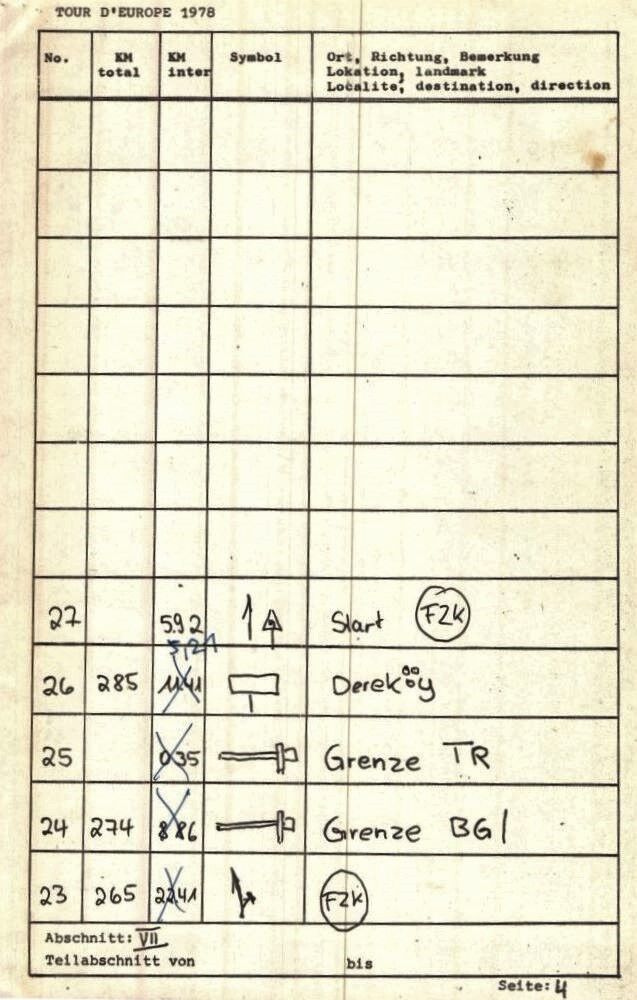 TOUR D'EUROPE 1978
No. KM total KM inter Symbol Ort, Richtung, Bemerkung
Lokation, landmark
Localite, destination, direction
27 5.92 Start FZK
5,21
26 285 11.41 Dereköy
25 0.35 Grenze TR
24 274 8.86 Grenze BG
23 265 22.41 FZK
Abschnitt: VII
Teilabschnitt von bis
Seite: 4